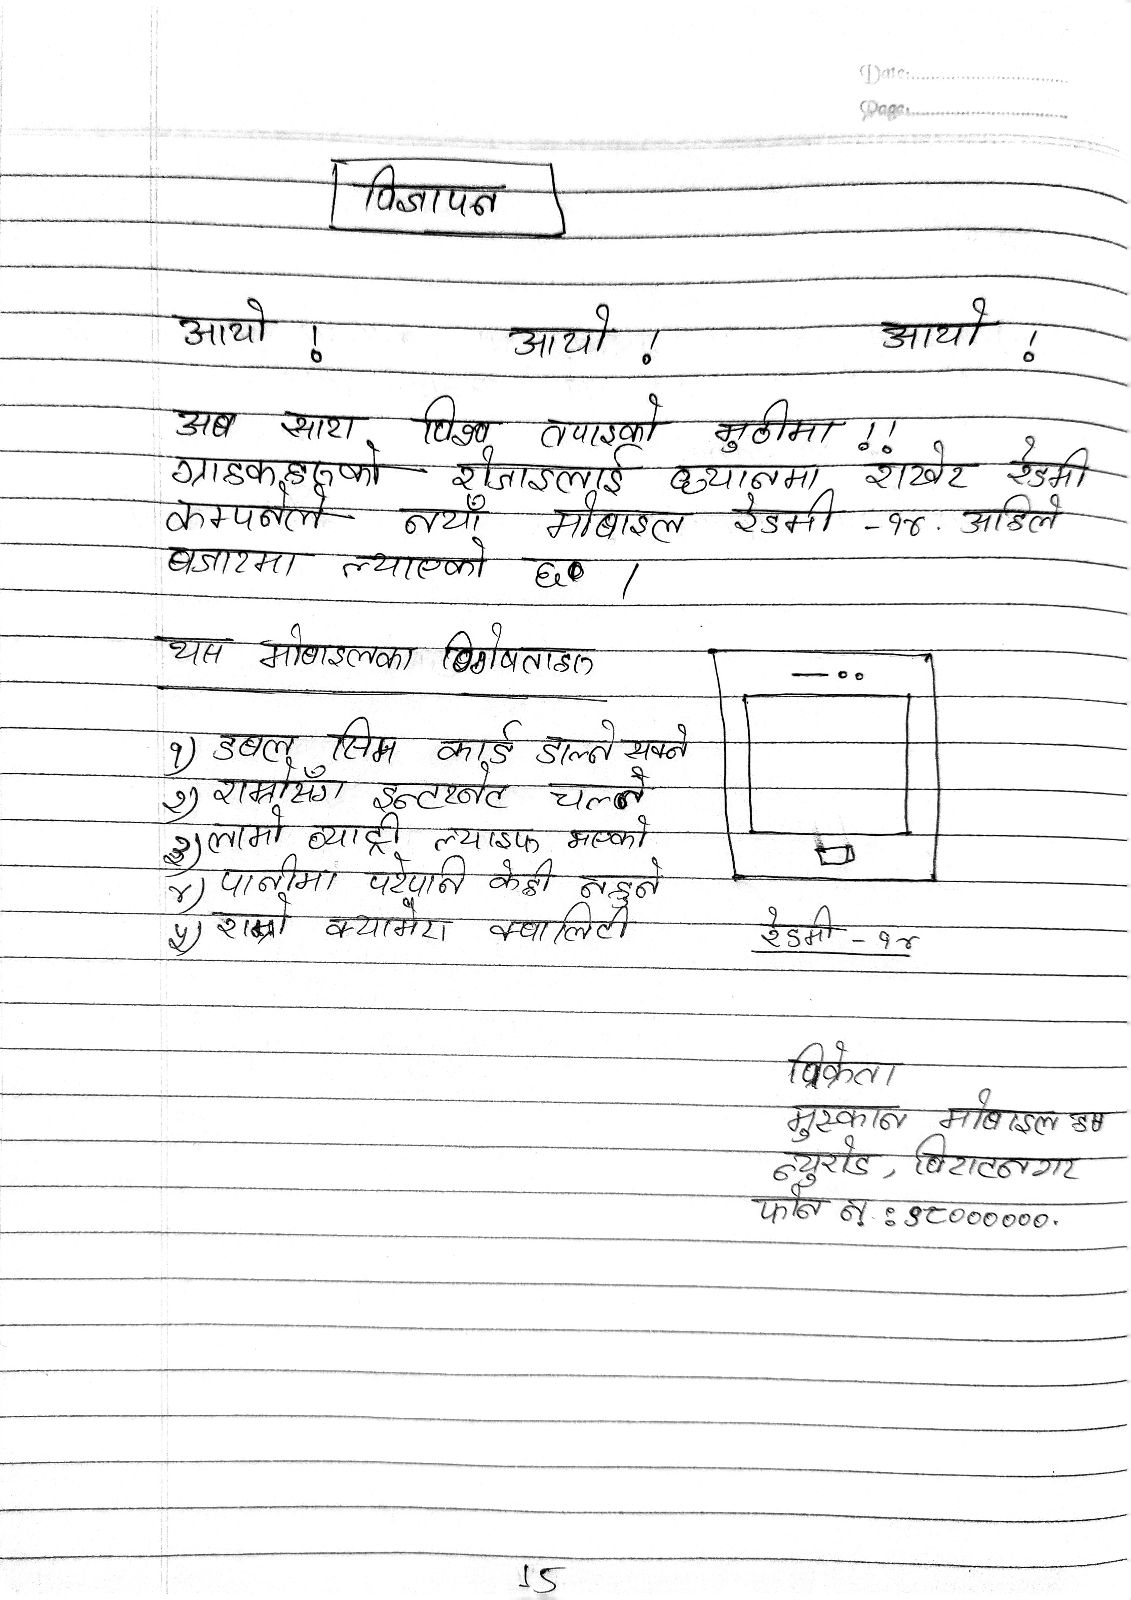 Date:
Page:
विज्ञापन
आयो ! आयो ! आयो !
अब सारा विश्व तपाइको मुठीमा !!
ग्राहकहरुको रोजाइलाई ध्यानमा राखेर रेडमी
कम्पनीले नयाँ मोबाइल रेडमी -१४. अहिले
बजारमा ल्याएको छ ।
यस मोबाइलका विशेषताहरु
१) डबल सिम कार्ड डाल्न सक्ने
२) राम्रोसँग इन्टरनेट चल्ने
३) लामो ब्याट्री ल्याइफ भएको
४) पानीमा परेपनि केही नहुने
५) राम्रो क्यामेरा क्वालिटी
रेडमी - १४
विक्रेता
मुस्कान मोबाइल हब
न्युरोड, विराटनगर
फोन न. : ९८००००००.
15